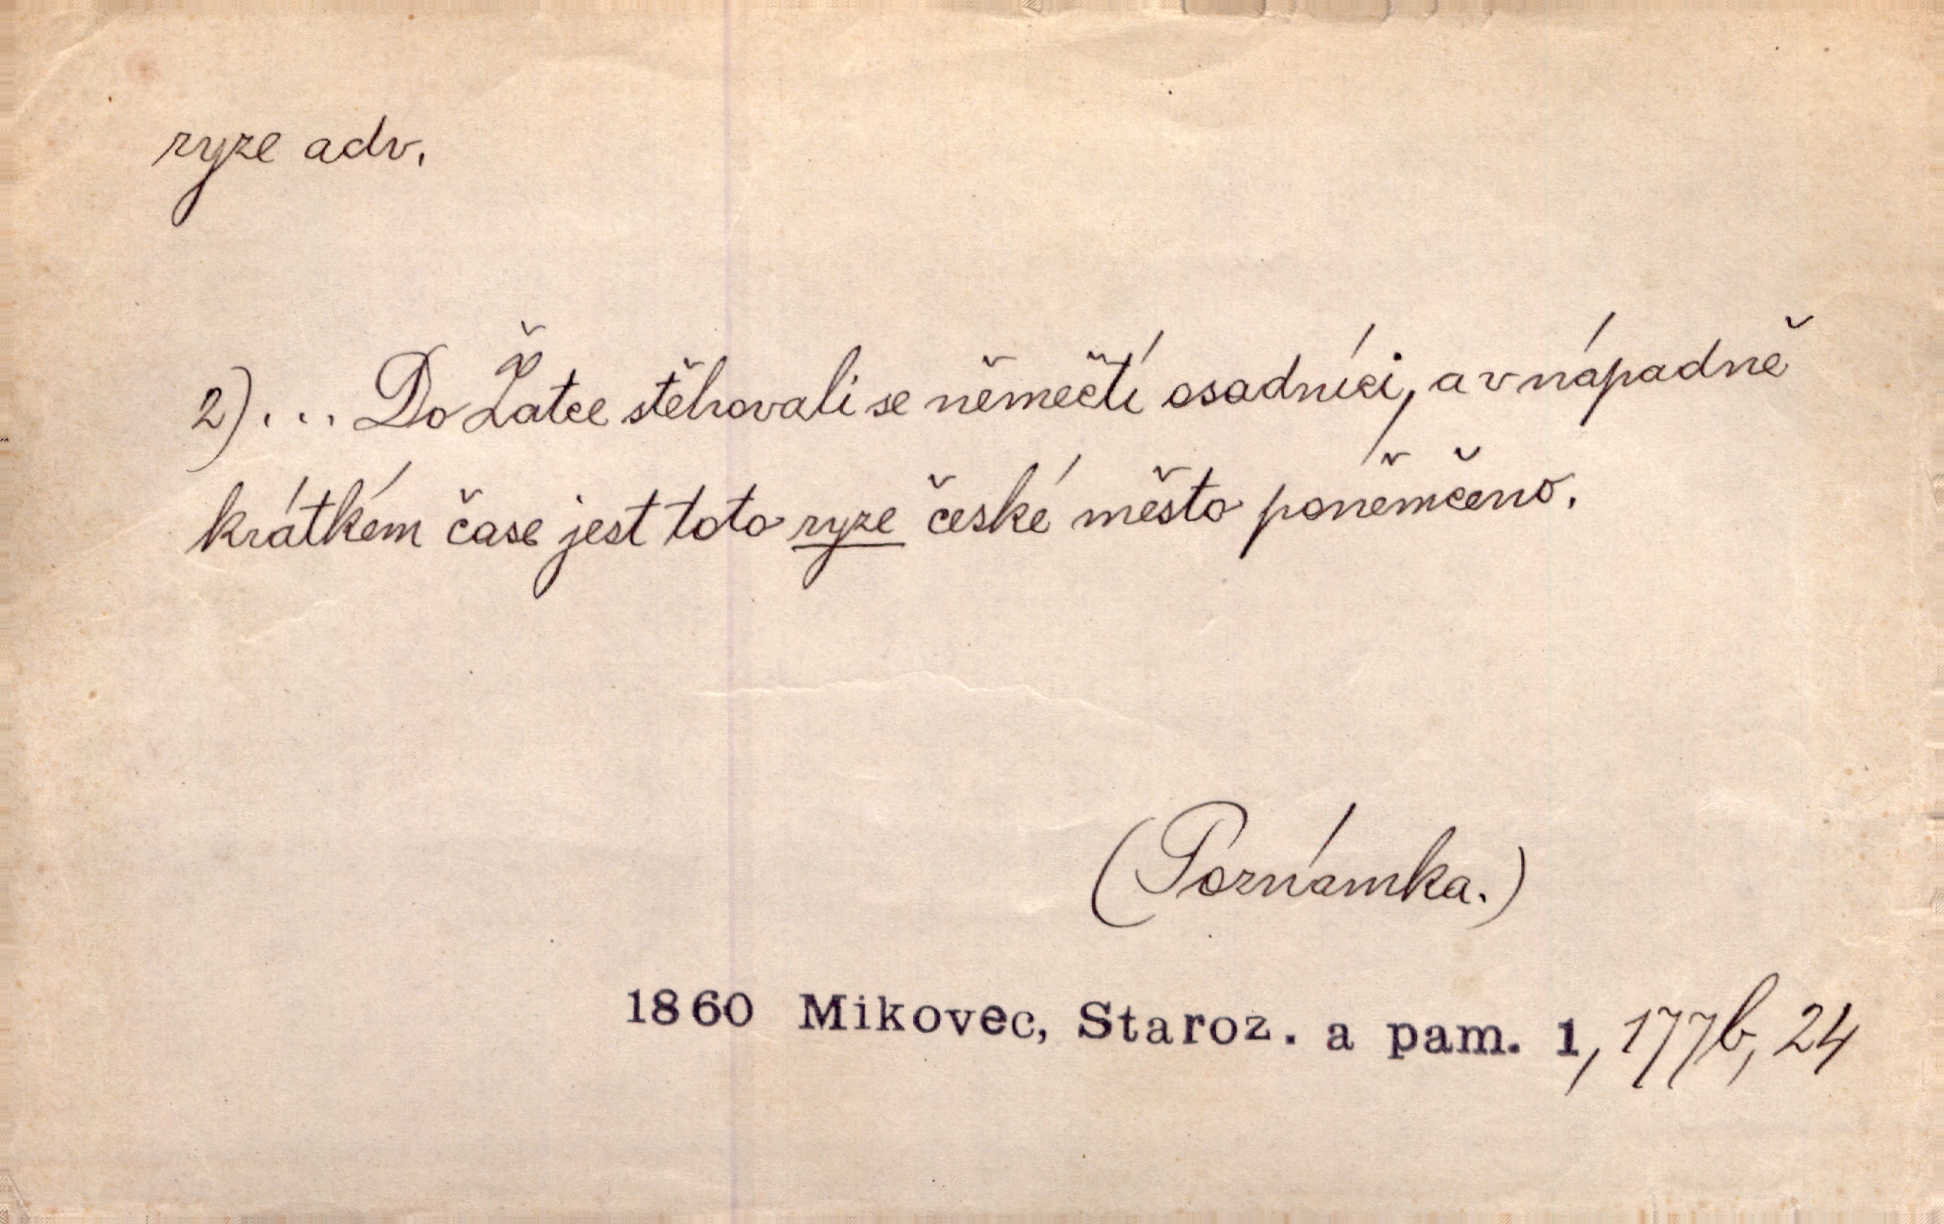 ryze adv.
2) ... Do Žatce stěhovali se němečtí osadníci, a v nápadně
krátkém čase jest toto ryze české město poněmčeno.
(Poznámka.)
1860 Mikovec, Starož. a pam. 1, 177b, 24